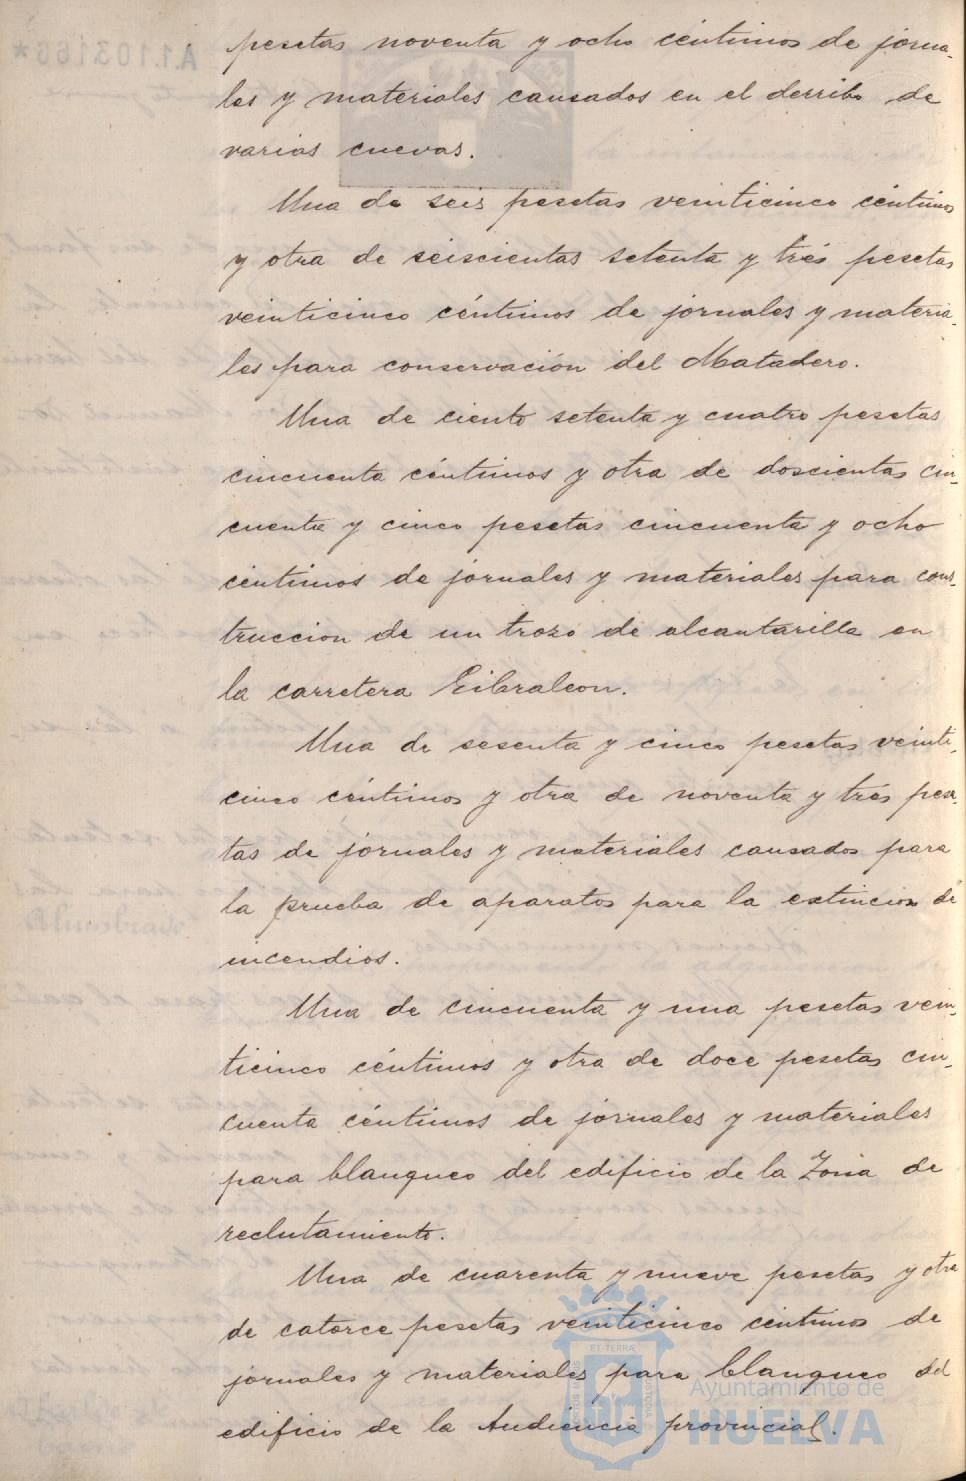 A.1.103166*
pesetas noventa y ocho céntimos de jorna-
les y materiales causados en el derribo de
varias cuevas.
Una de seis pesetas veinticinco céntimos
y otra de seiscientas setenta y trés pesetas
veinticinco céntimos de jornales y materia-
les para conservación del Matadero.
Una de ciento setenta y cuatro pesetas
cincuenta céntimos y otra de doscientas cin-
cuenta y cinco pesetas cincuenta y ocho
céntimos de jornales y materiales para cons-
truccion de un trozo de alcantarilla en
la carretera Gibraleon.
Una de sesenta y cinco pesetas veinti-
cinco céntimos y otra de noventa y trés pese-
tas de jornales y materiales causados para
la prueba de aparatos para la extincion de
incendios.
Una de cincuenta y una pesetas vein-
ticinco céntimos y otra de doce pesetas cin-
cuenta céntimos de jornales y materiales
para blanqueo del edificio de la Zona de
reclutamiento.
Una de cuarenta y nueve pesetas y otra
de catorce pesetas veinticinco céntimos de
jornales y materiales para blanqueo del
edificio de la Audiencia provincial.
Ayuntamiento de
HUELVA